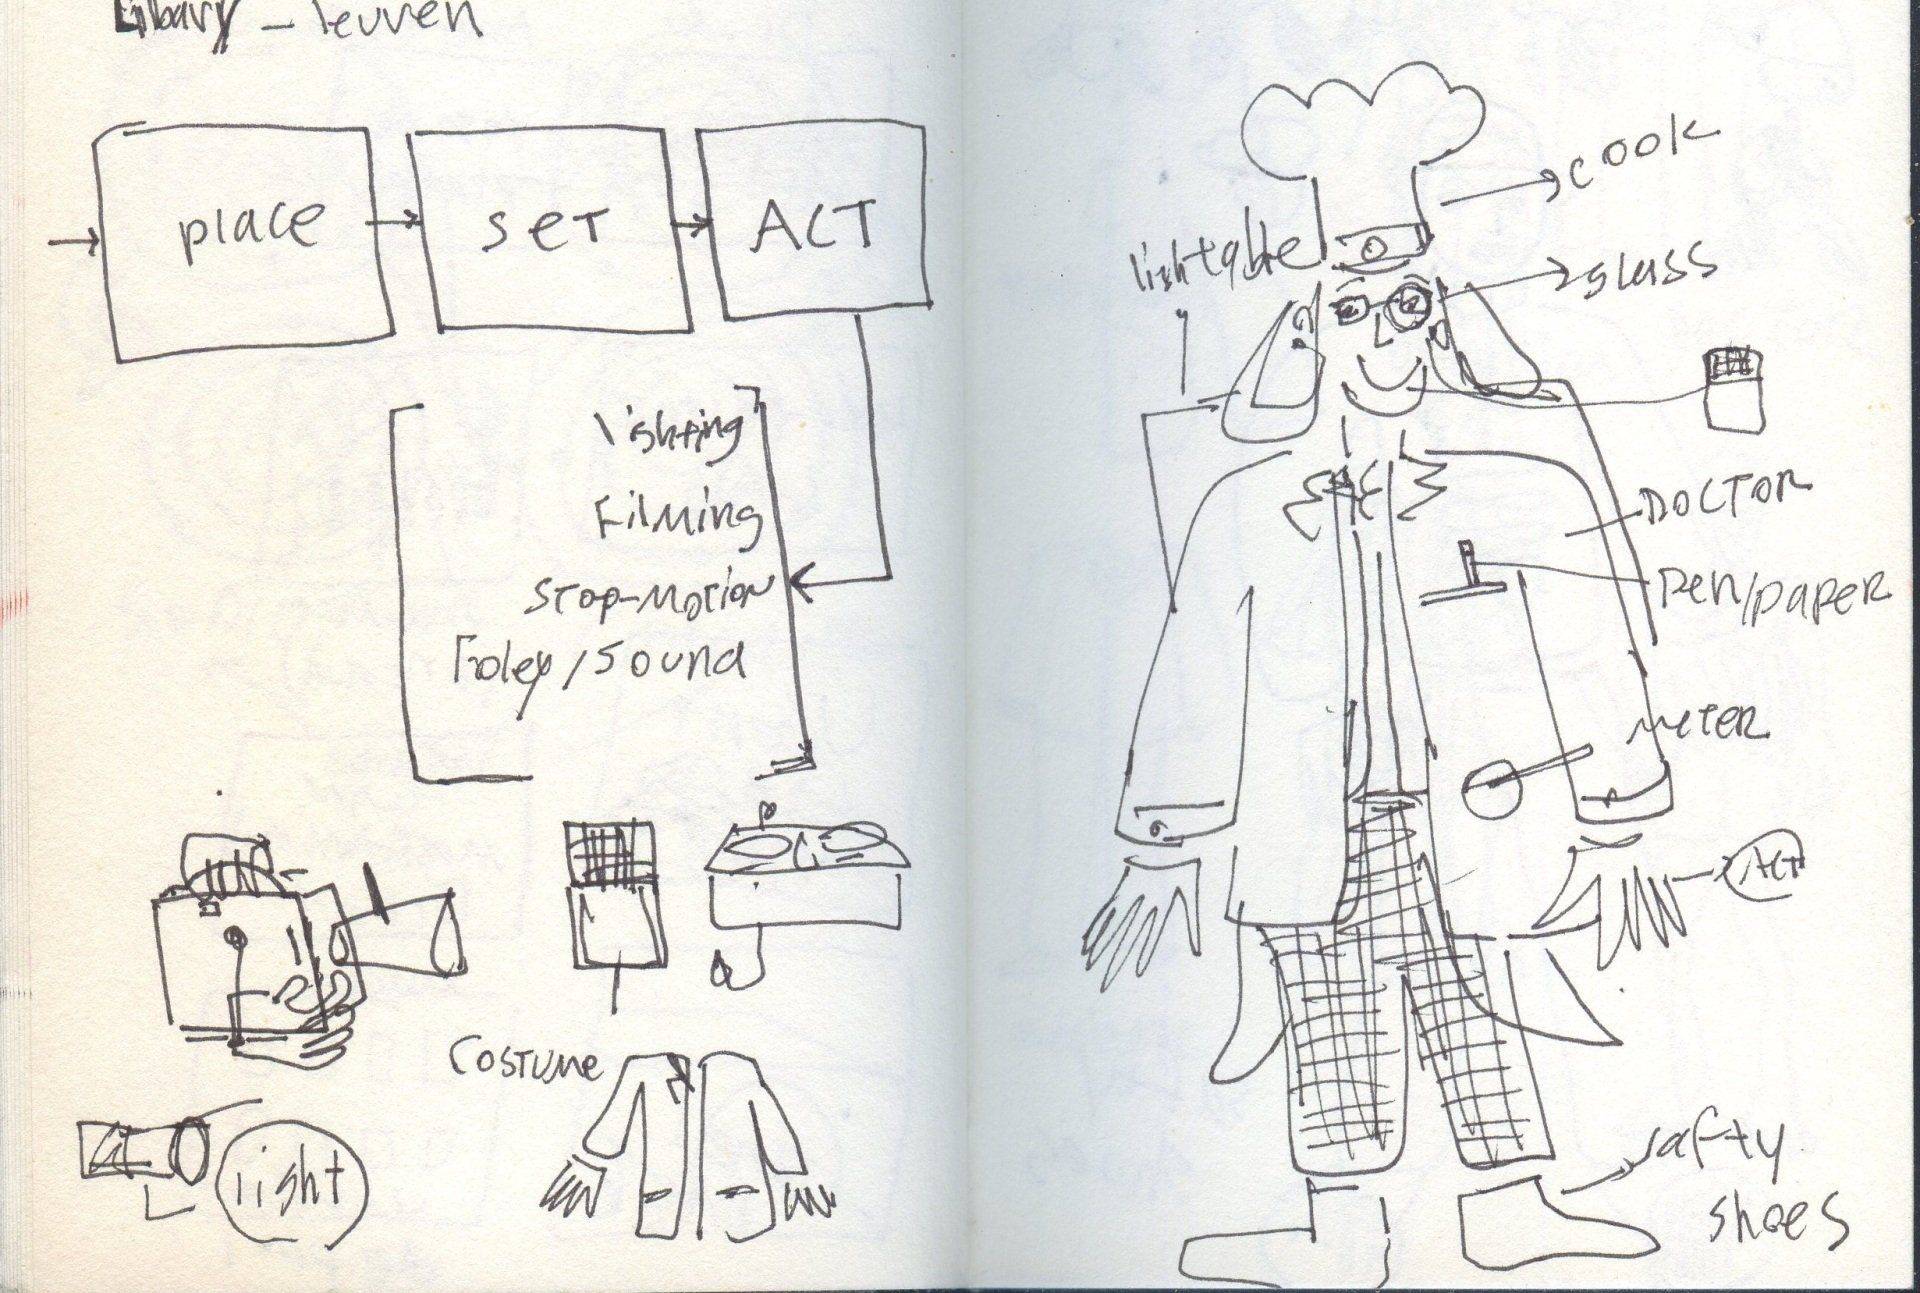 Libary - leuven
place
SET
ACT
lighting
Filming
STOP-MOTION
Foley/Sound
COSTUME
light
cook
lightable
glass
DOCTOR
Pen/paper
METER
ACT
safty
shoes